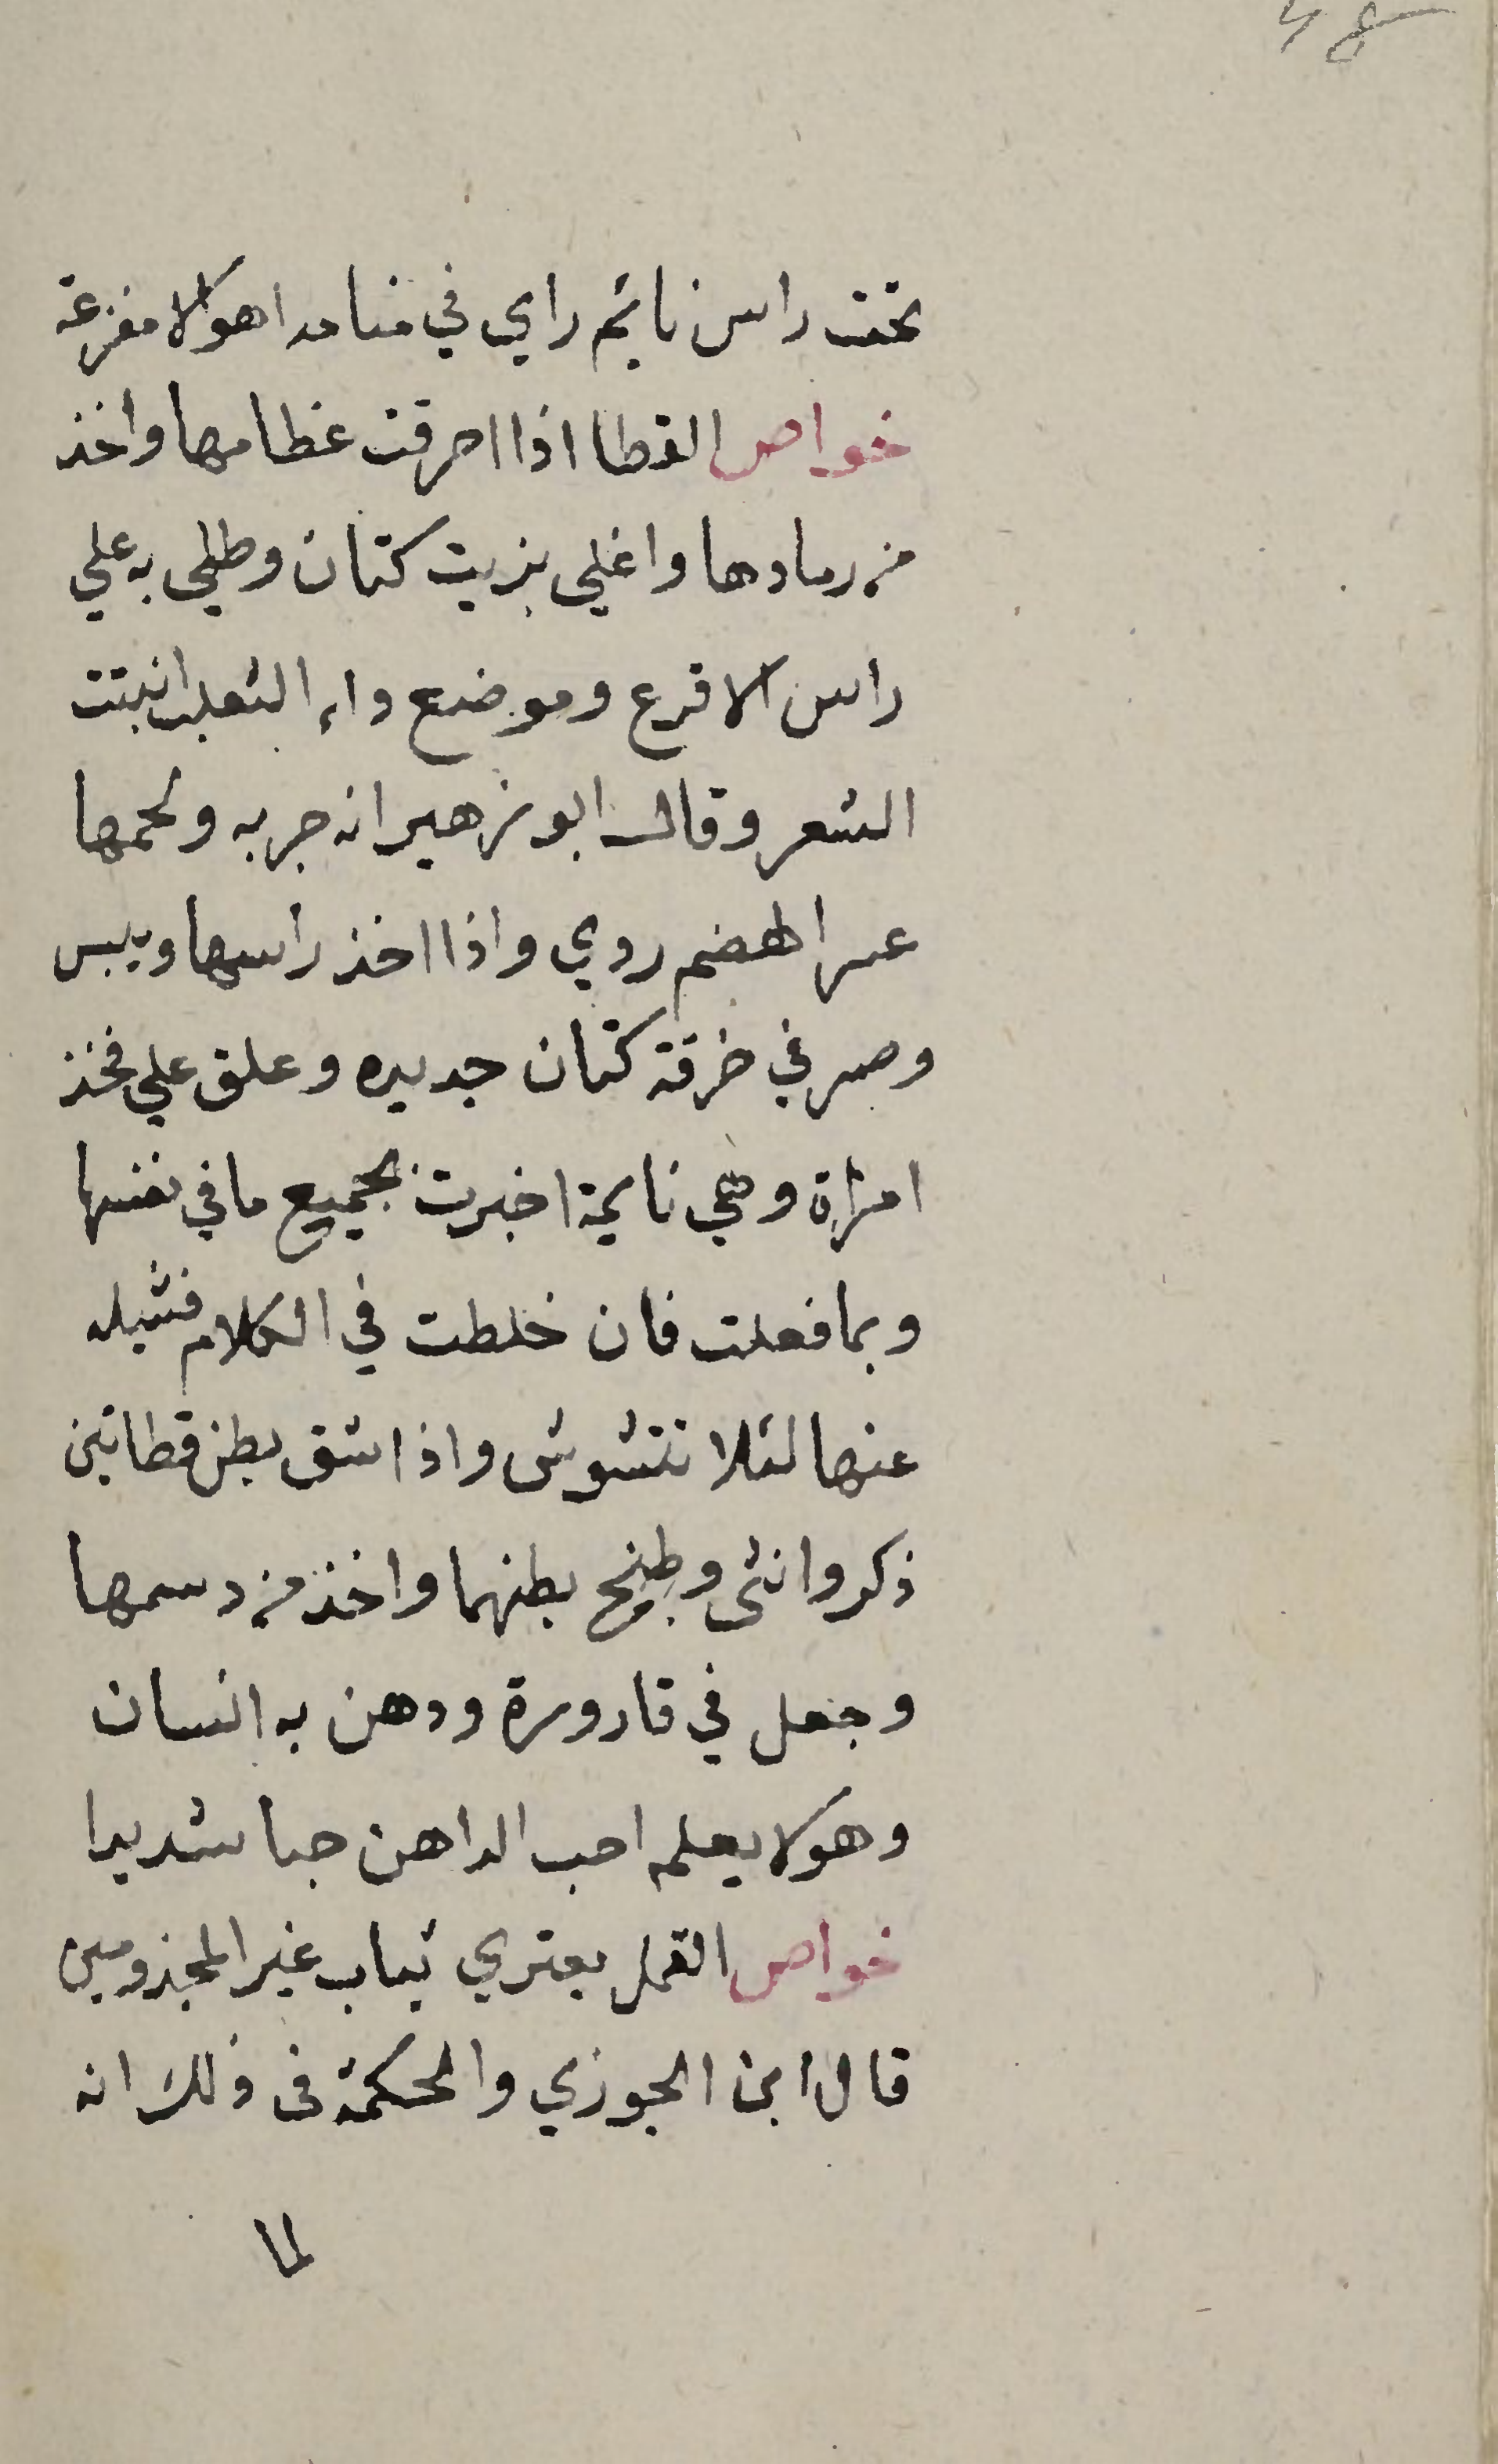 48
تحت راس نايم راي في منامه اهوالا مفزعة
خواص القطا اذا احرقت عظامها واخذ
من رمادها واغلي بزيت كتان وطلي به علي
راس الاقرع وموضع داء الثعلب انبتت
الشعر وقال ابو زهير انه جربه ولحمها
عسر الهضم ردي واذا اخذ راسها ويبس
وصر في خرقة كتان جديده وعلق علي فخذ
امراة وهي نايمة اخبرت بجميع ما في نفسها
وبما فعلت فان خلطت في الكلام فشيله
عنها لئلا تتشوش واذا شق بطن قطاتين
ذكر وانثى وطبخ بطنهما واخذ من دسمها
وجعل في قارورة ودهن به انسان
وهو لا يعلم احب الداهن حبا شديدا
خواص القمل يعتري ثياب غير المجذومين
قال ابن الجوزي والحكمة في ذلك انه
لما